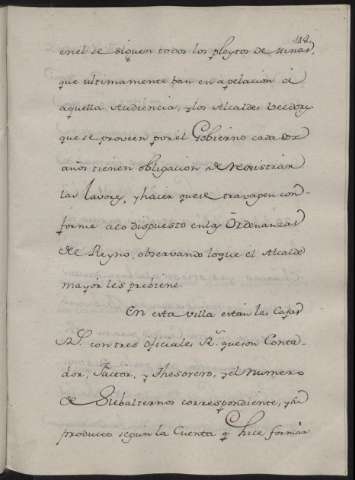 112.
en el se siguen todos los pleytos de Minas,
que ultimamente van en apelacion á
aquella Audiencia, y los Alcaldes veedores
que se proveen por el Gobierno cada dos
años tienen obligacion de rexistrar
las lavores, y hacer que se travagen con-
forme a lo dispuesto en las Ordenanzas
de Reyno, observando lo que el Alcalde
mayor les previene.
En esta villa están las Cajas
R.s con tres oficiales R.s que son Conta-
dor, Factor, y Thesorero, y el numero
de Subalternos correspondiente, y ha
producto segun la Cuenta q.e hice formar